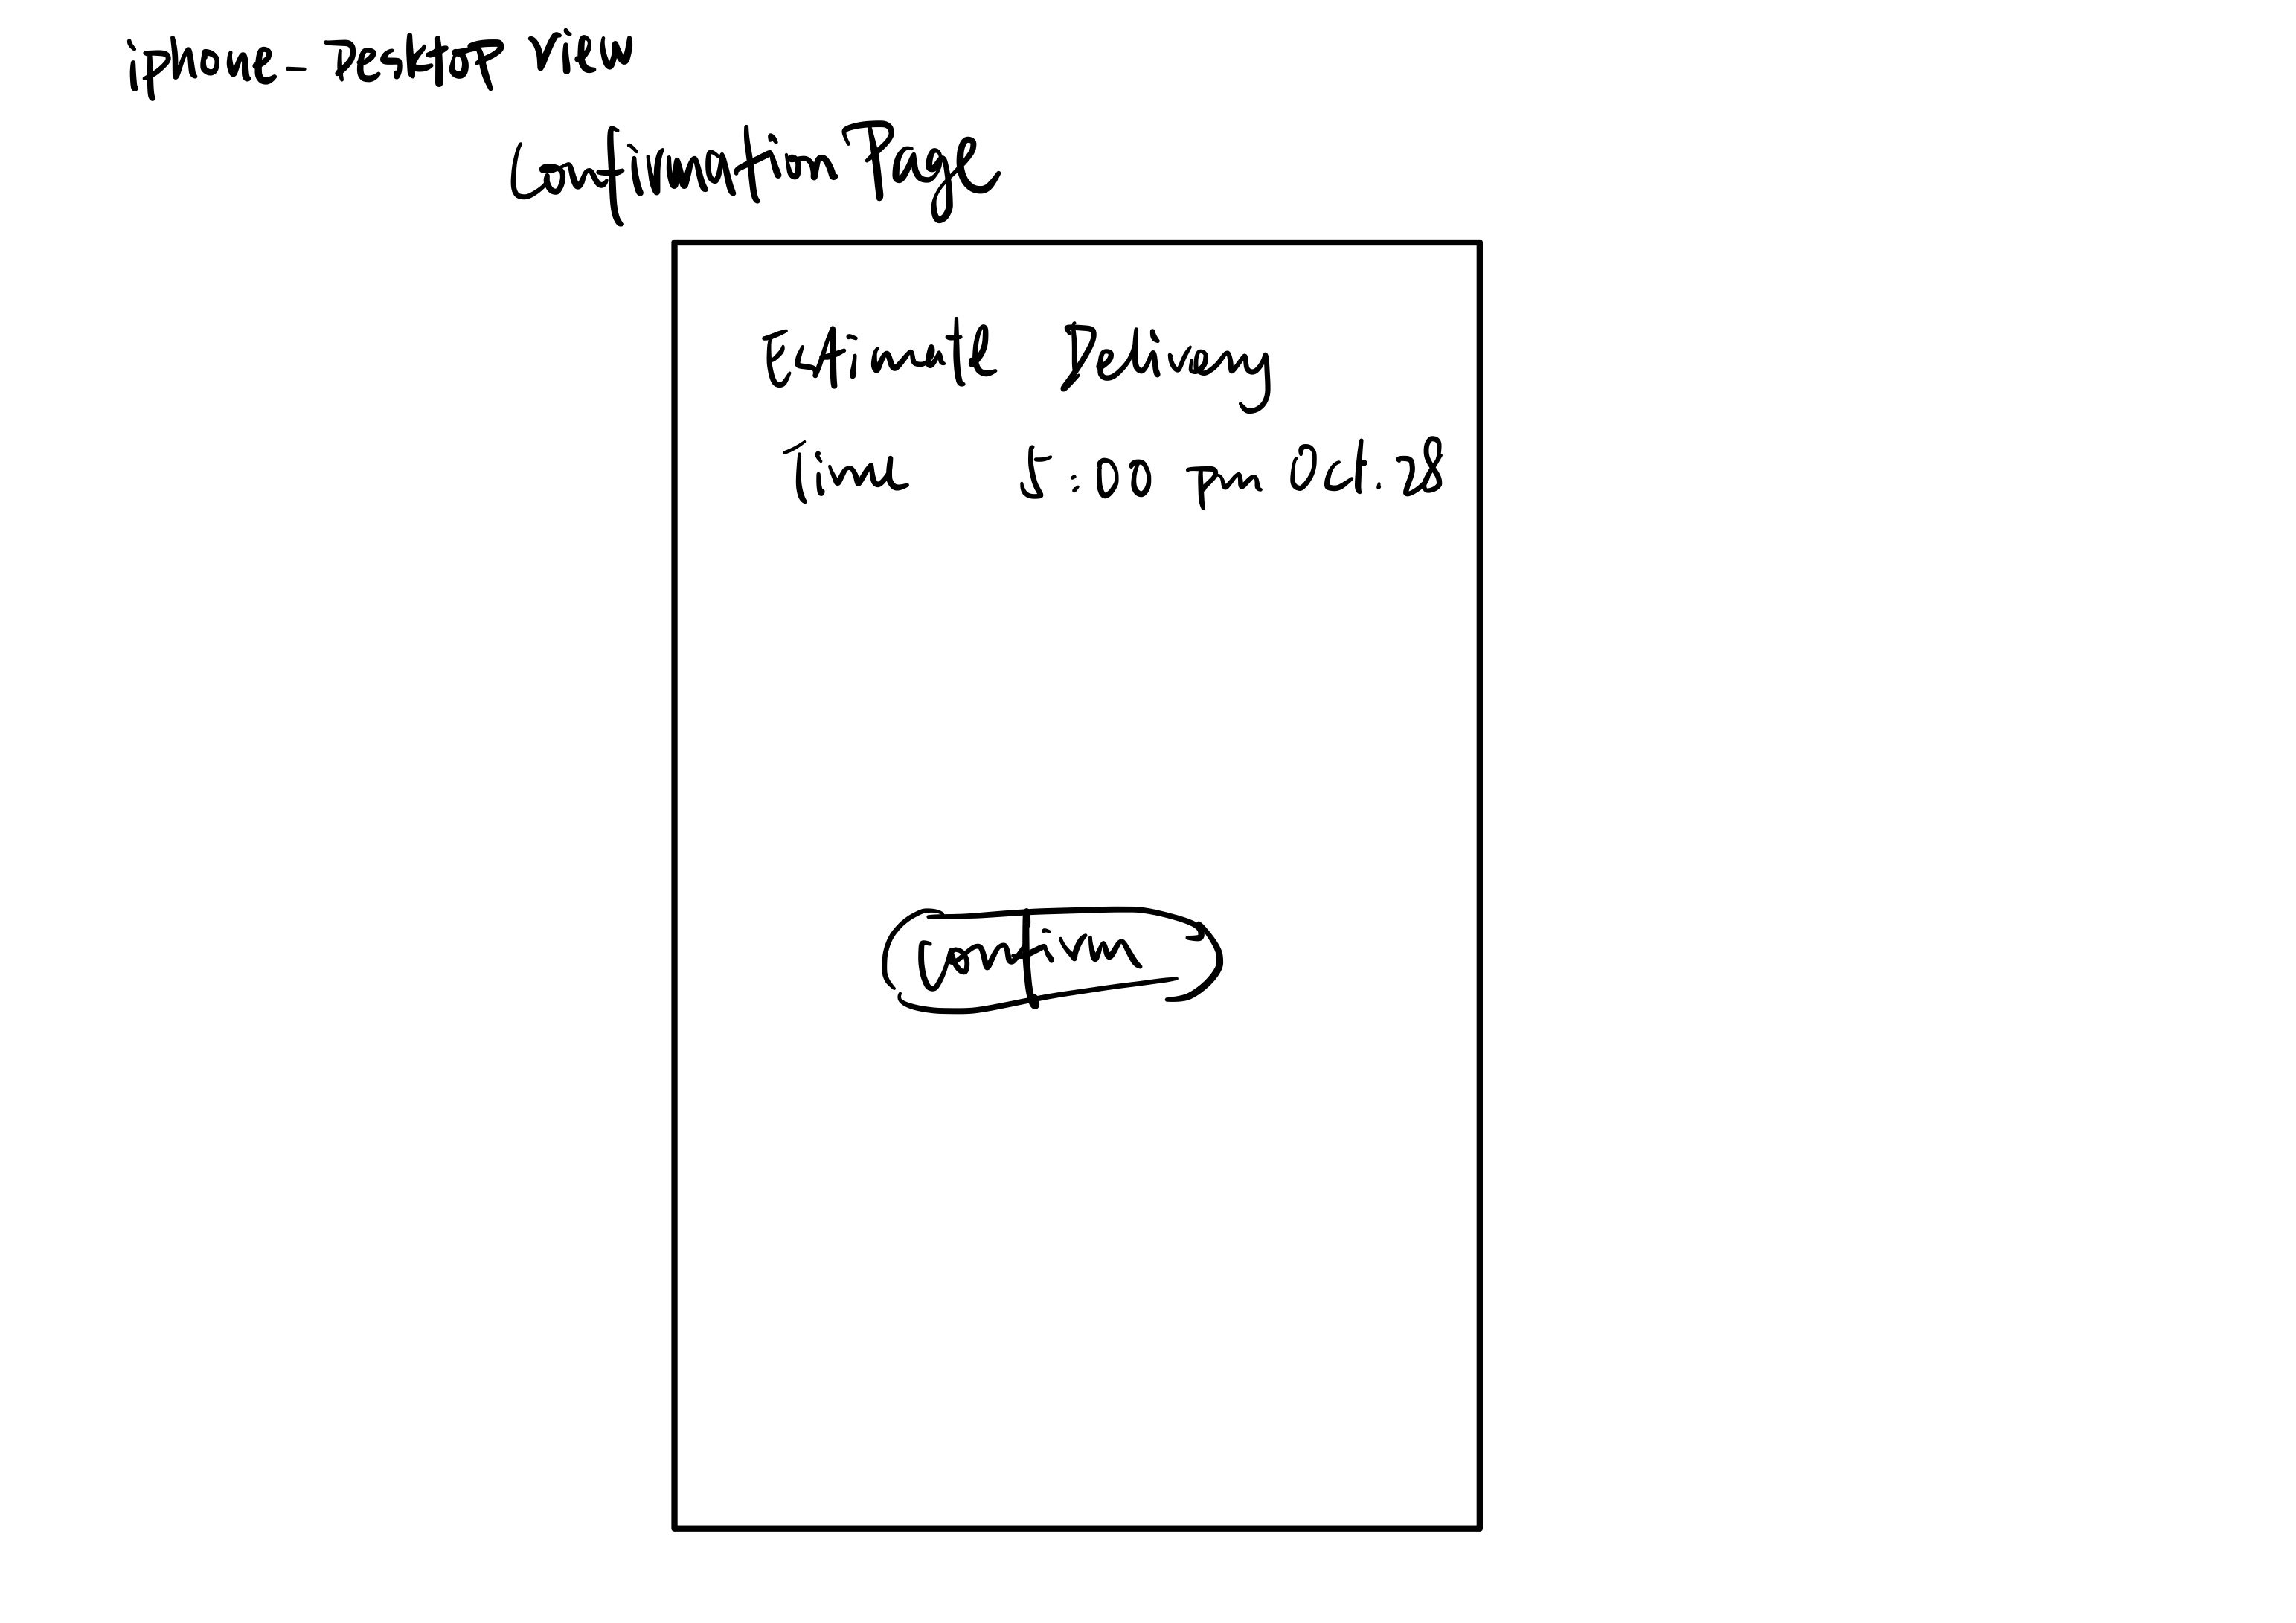 iphone - Desktop view
Confirmation Page
Estimate Delivery
Time 5:00 pm Oct. 28
Confirm